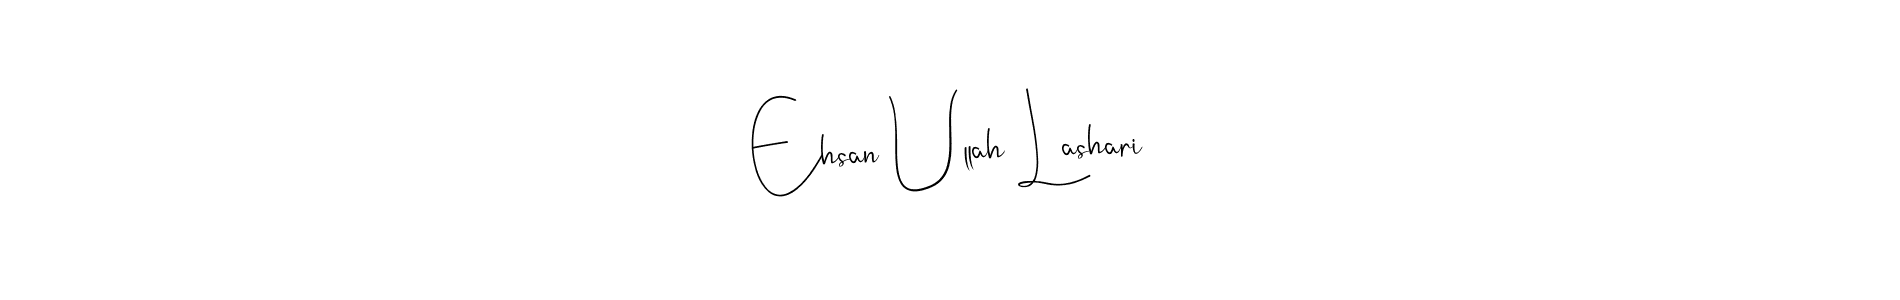 Ehsan Ullah Lashari